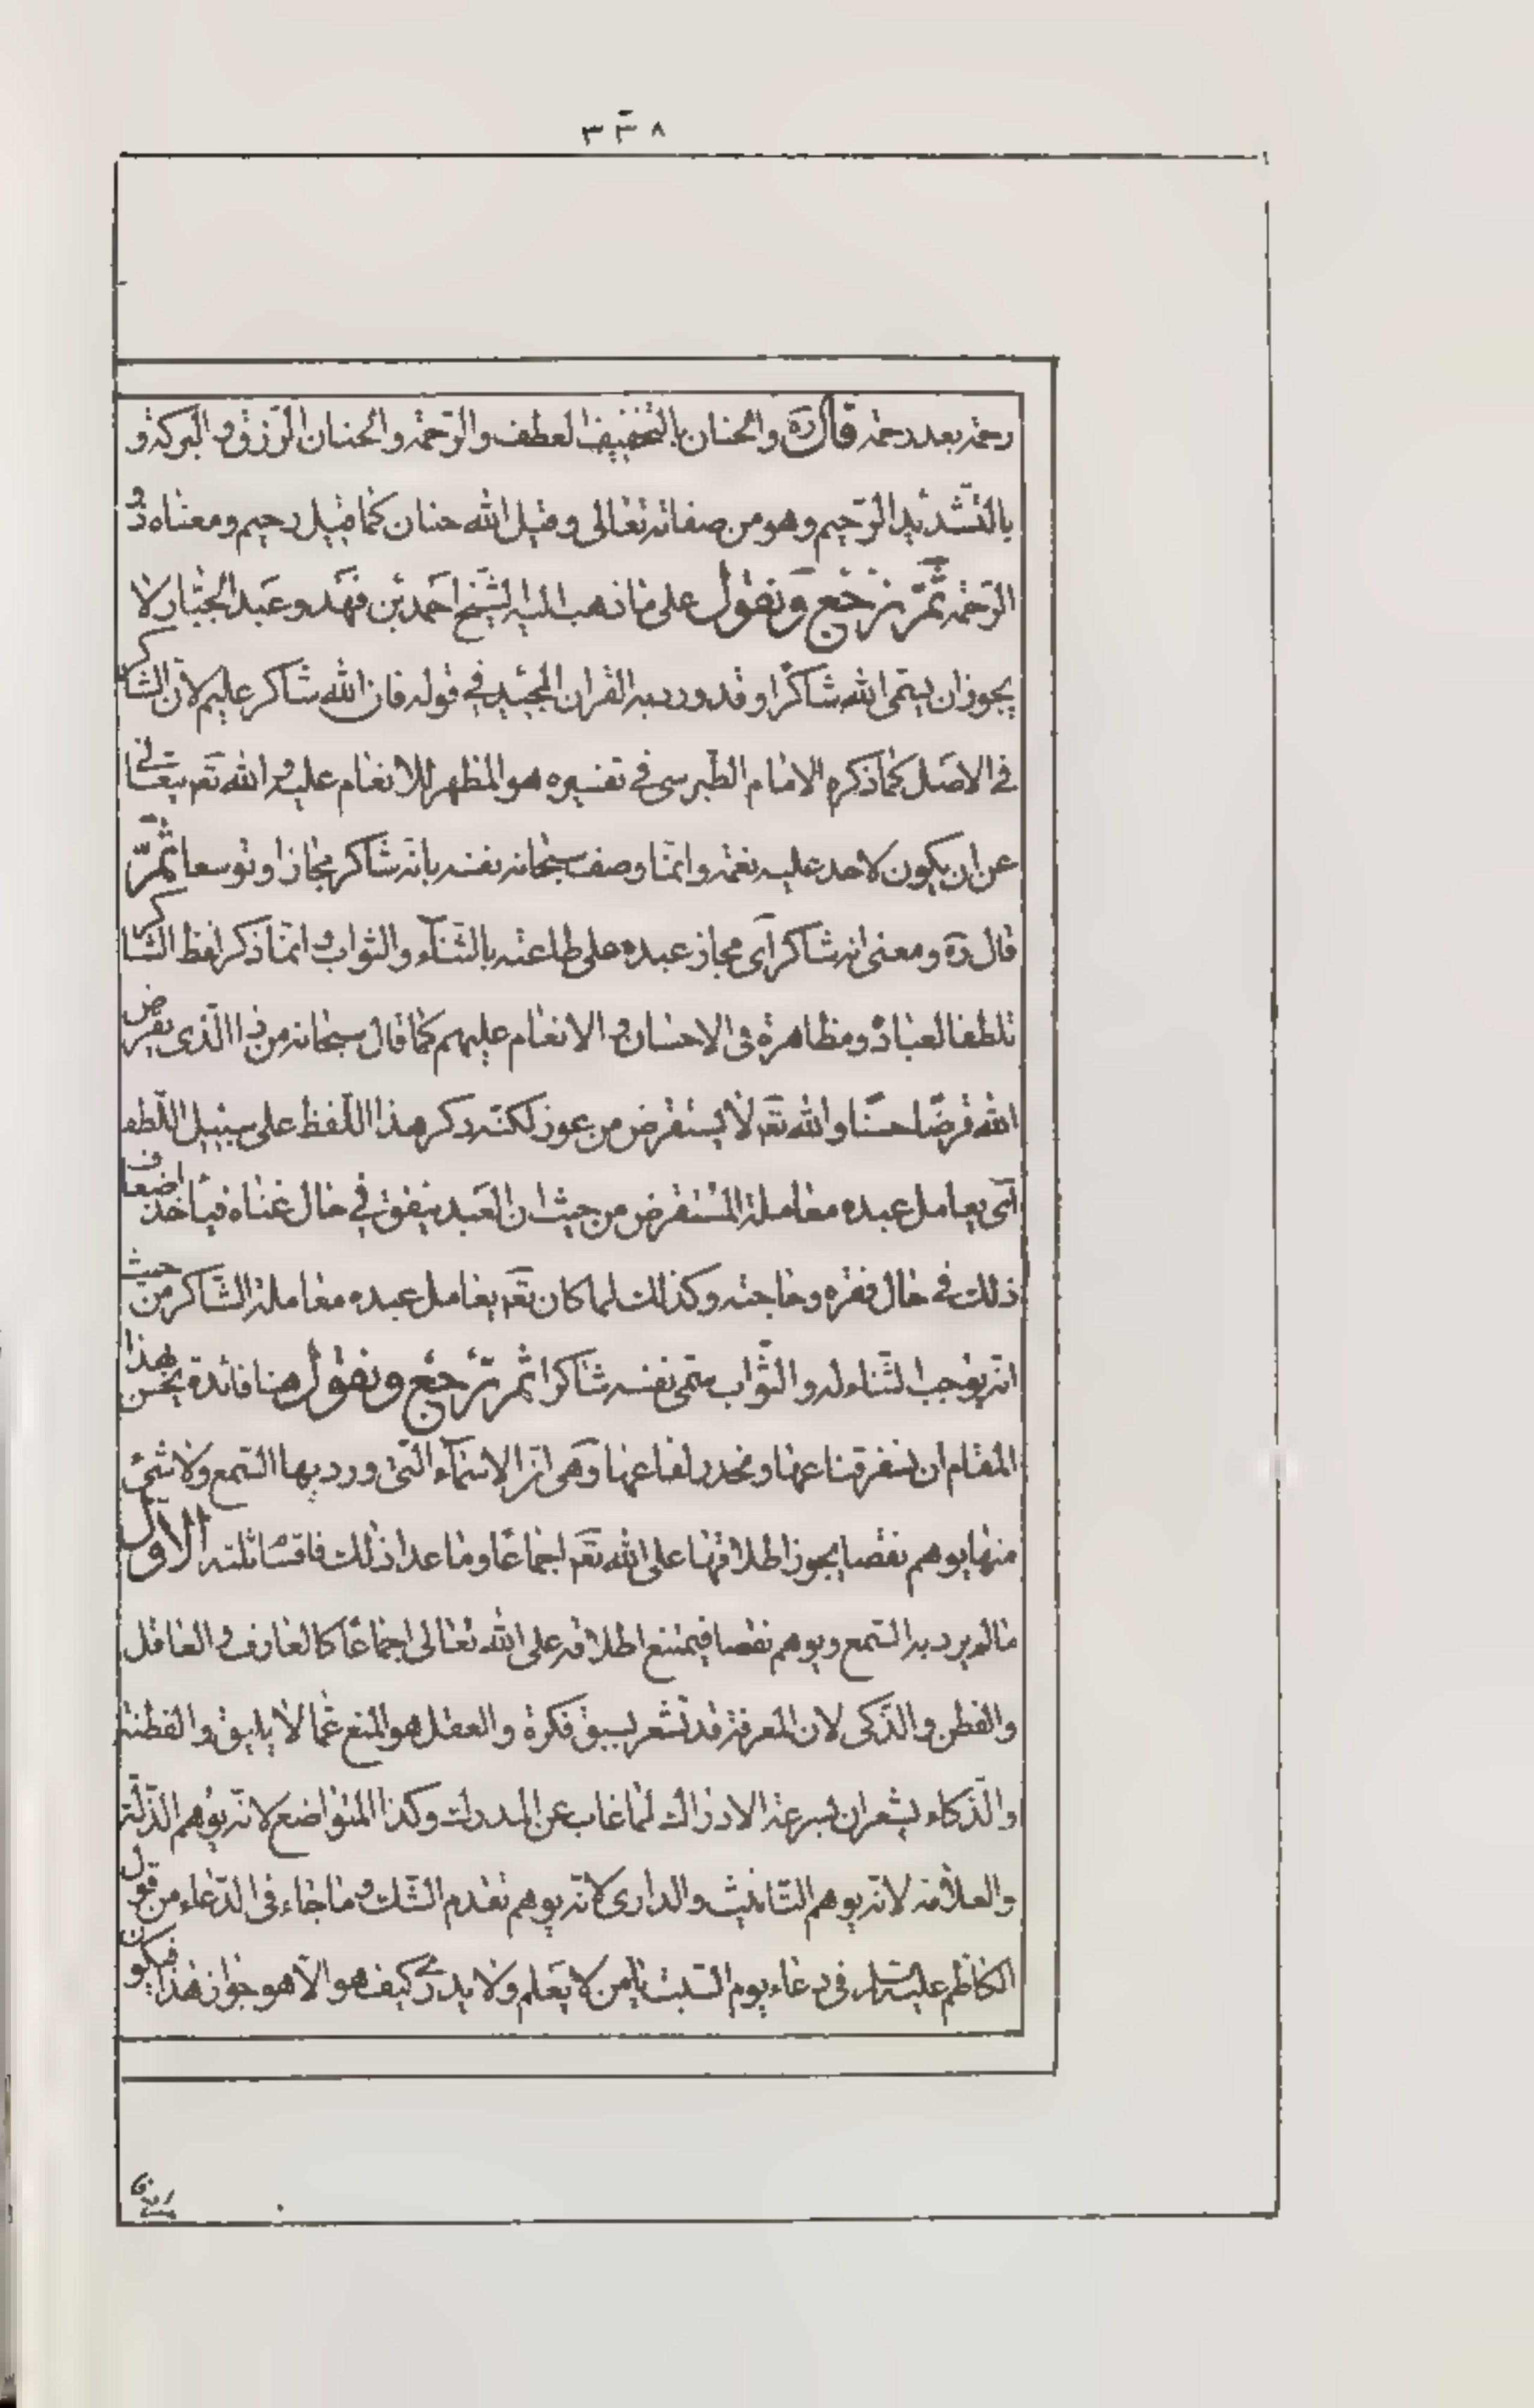 ٣٣٨
رحمة بعد رحمة قال ره والحنان بالتخفيف العطف والرحمة والحنان الرزق والبركة و
بالتشديد الرحيم وهو من صفاته تعالى وقيل الله حنان كما قيل رحيم ومعناه ذو
الرحمة ثم نرجع ونقول على ما ذهب اليه الشيخ احمد بن فهد وعبد الجبار لا
يجوز ان يسمى الله شاكرا وقد ورد به القران المجيد في قوله فان الله شاكر عليم لان الشاكر
في الاصل كما ذكره الامام الطبرسي في تفسيره هو المظهر للانعام عليه والله تعم يتعالى
عن ان يكون لاحد عليه نعمة وانما وصف سبحانه نفسه بانه شاكر مجازا وتوسعا ثم
قال ره ومعنى انه شاكر أي مجاز عبده على طاعته بالثناء والثواب وانما ذكر لفظ الشاكر
تلطفا لعباده ومظاهرة في الاحسان والانعام عليهم كما قال سبحانه من ذا الذي يقرض
الله قرضا حسنا والله تعم لا يستقرض من عوز لكنه ذكر هذا اللفظ على سبيل اللطف
أي يعامل عبده معاملة المستقرض من حيث ان العبد ينفق في حال غناه فيأخذ اضعاف
ذلك في حال فقره وحاجته وكذلك لما كان تعم يعامل عبده معاملة الشاكر من حيث
انه يوجب الثناء له والثواب سمى نفسه شاكرا ثم نرجع ونقول هنا فائدة يحسن بهذا
المقام ان نسفر قناعها ونحدر لفاعها وهي ان الاسماء التي ورد بها السمع ولا شئ
منها يوهم نقصا يجوز اطلاقها على الله تعم اجماعا وما عدا ذلك فاقسامه ثلثة الاول
ما لم يرد به السمع ويوهم نقصا فيمتنع اطلاقه على الله تعالى اجماعا كالعارف والعاقل
والفطن والذكى لان المعرفة قد تشعر بسبق فكرة والعقل هو المنع عما لا يليق والفطنة
والذكاء يشعران بسرعة الادراك لما غاب عن المدرك وكذا المتواضع لانه يوهم الذلة
والعلامة لانه يوهم التانيث والدارى لانه يوهم تقدم الشك وما جاء في الدعاء من قول
الكاظم عليه السلام في دعاء يوم السبت يا من لا يعلم ولا يدرى كيف هو الا هو جواز هذا فيكون